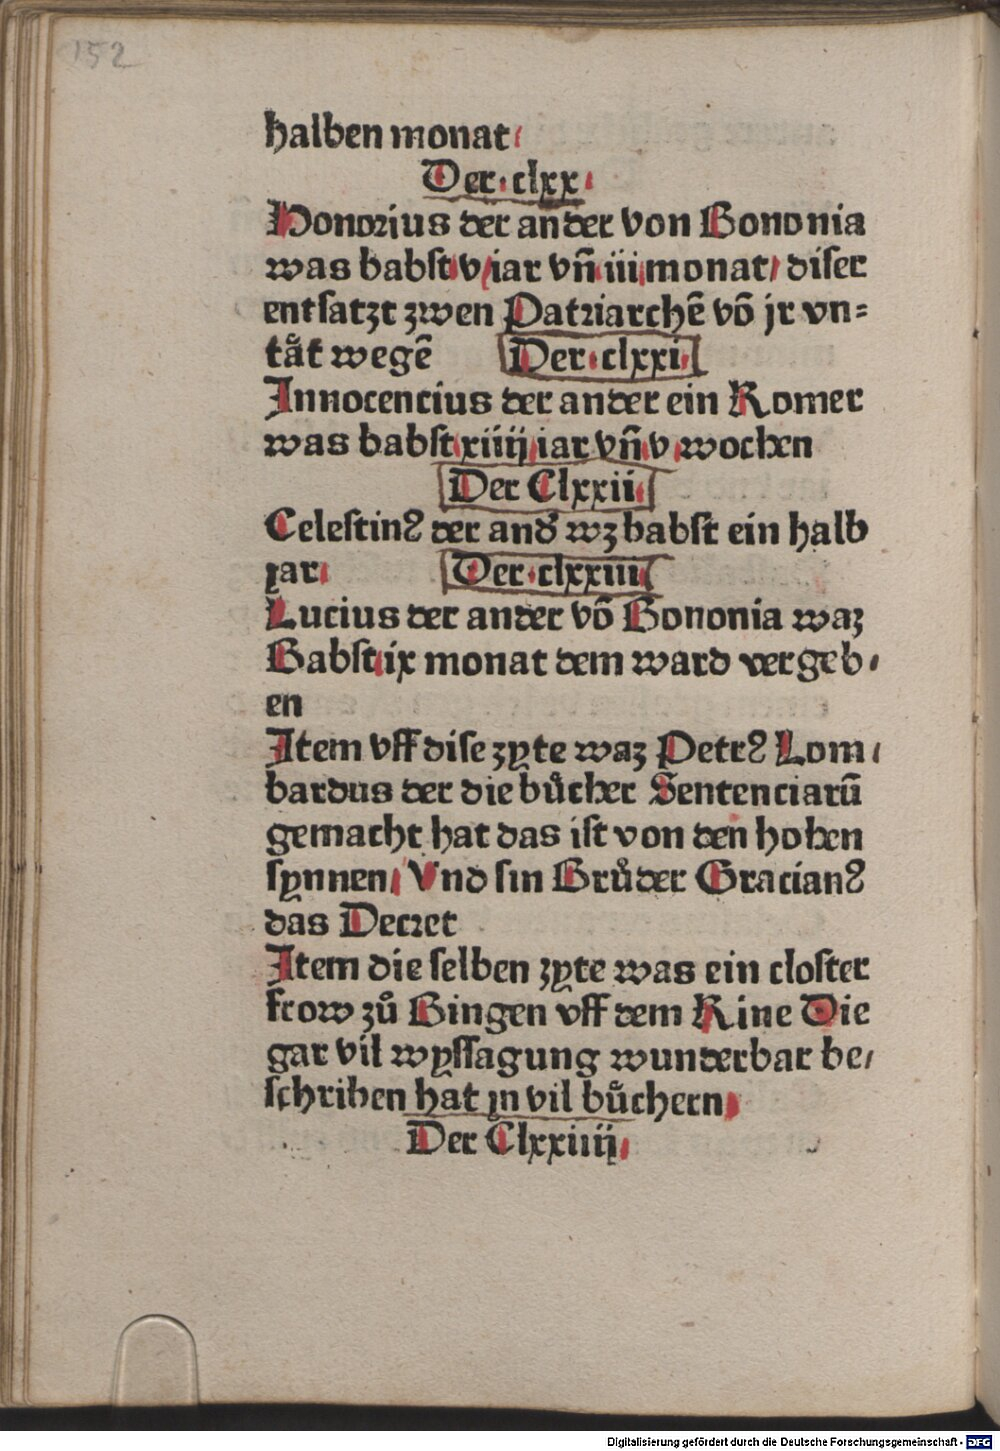 152
halben monat/
Der·clxx·
Honorius der ander von Bononia
was babst v iar vn̄ iii monat/ diser
entsatzt zwen Patriarchē vō jr vn=
tåt wegē Der·clxxi·
Innocencius der ander ein Romer
was babst xiiij iar vn̄ v wochen
Der Clxxii·
Celestinꝰ der and̕ wz babst ein halb
yar· Der·clxxiii·
Lucius der ander vō Bononia waz
Babst ix monat dem ward vergeb/
en
Item vff dise zyte waz Petrꝰ Lom/
bardus der die bůcher Sentenciarū
gemacht hat das ist von den hohen
synnen/ Vnd sin Brůder Gracianꝰ
das Decret
Item die selben zyte was ein closter
frow zů Bingen vff dem Rine Die
gar vil wyssagung wunderbar be/
schriben hat jn vil bůchern·
Der Clxxiiij·
Digitalisierung gefördert durch die Deutsche Forschungsgemeinschaft - DFG